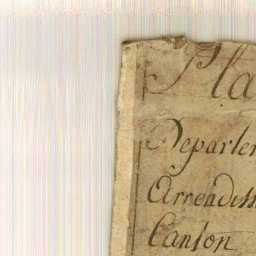 Pla
Departe
Arrondiss
Canton